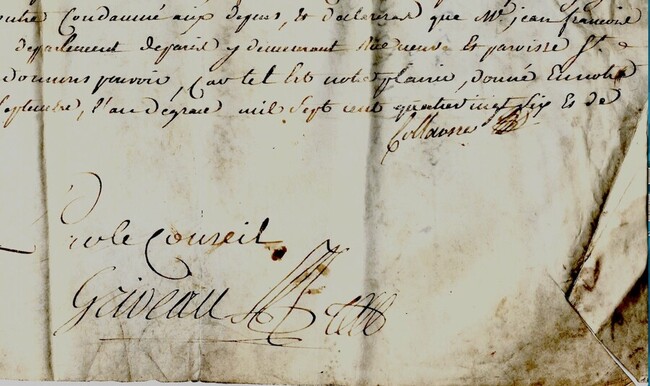 Condamné aux depens, Et declarons que Mr. jean francois
departement depareil y demeurant Rue neuve Et paroisse St.
donnons pouvoir, Car tel Est notre plaisir, donné En notre
septembre, l'an de grace mil Sept cent quatre vingt six Et de
Collationné
le Conseil
Griveau